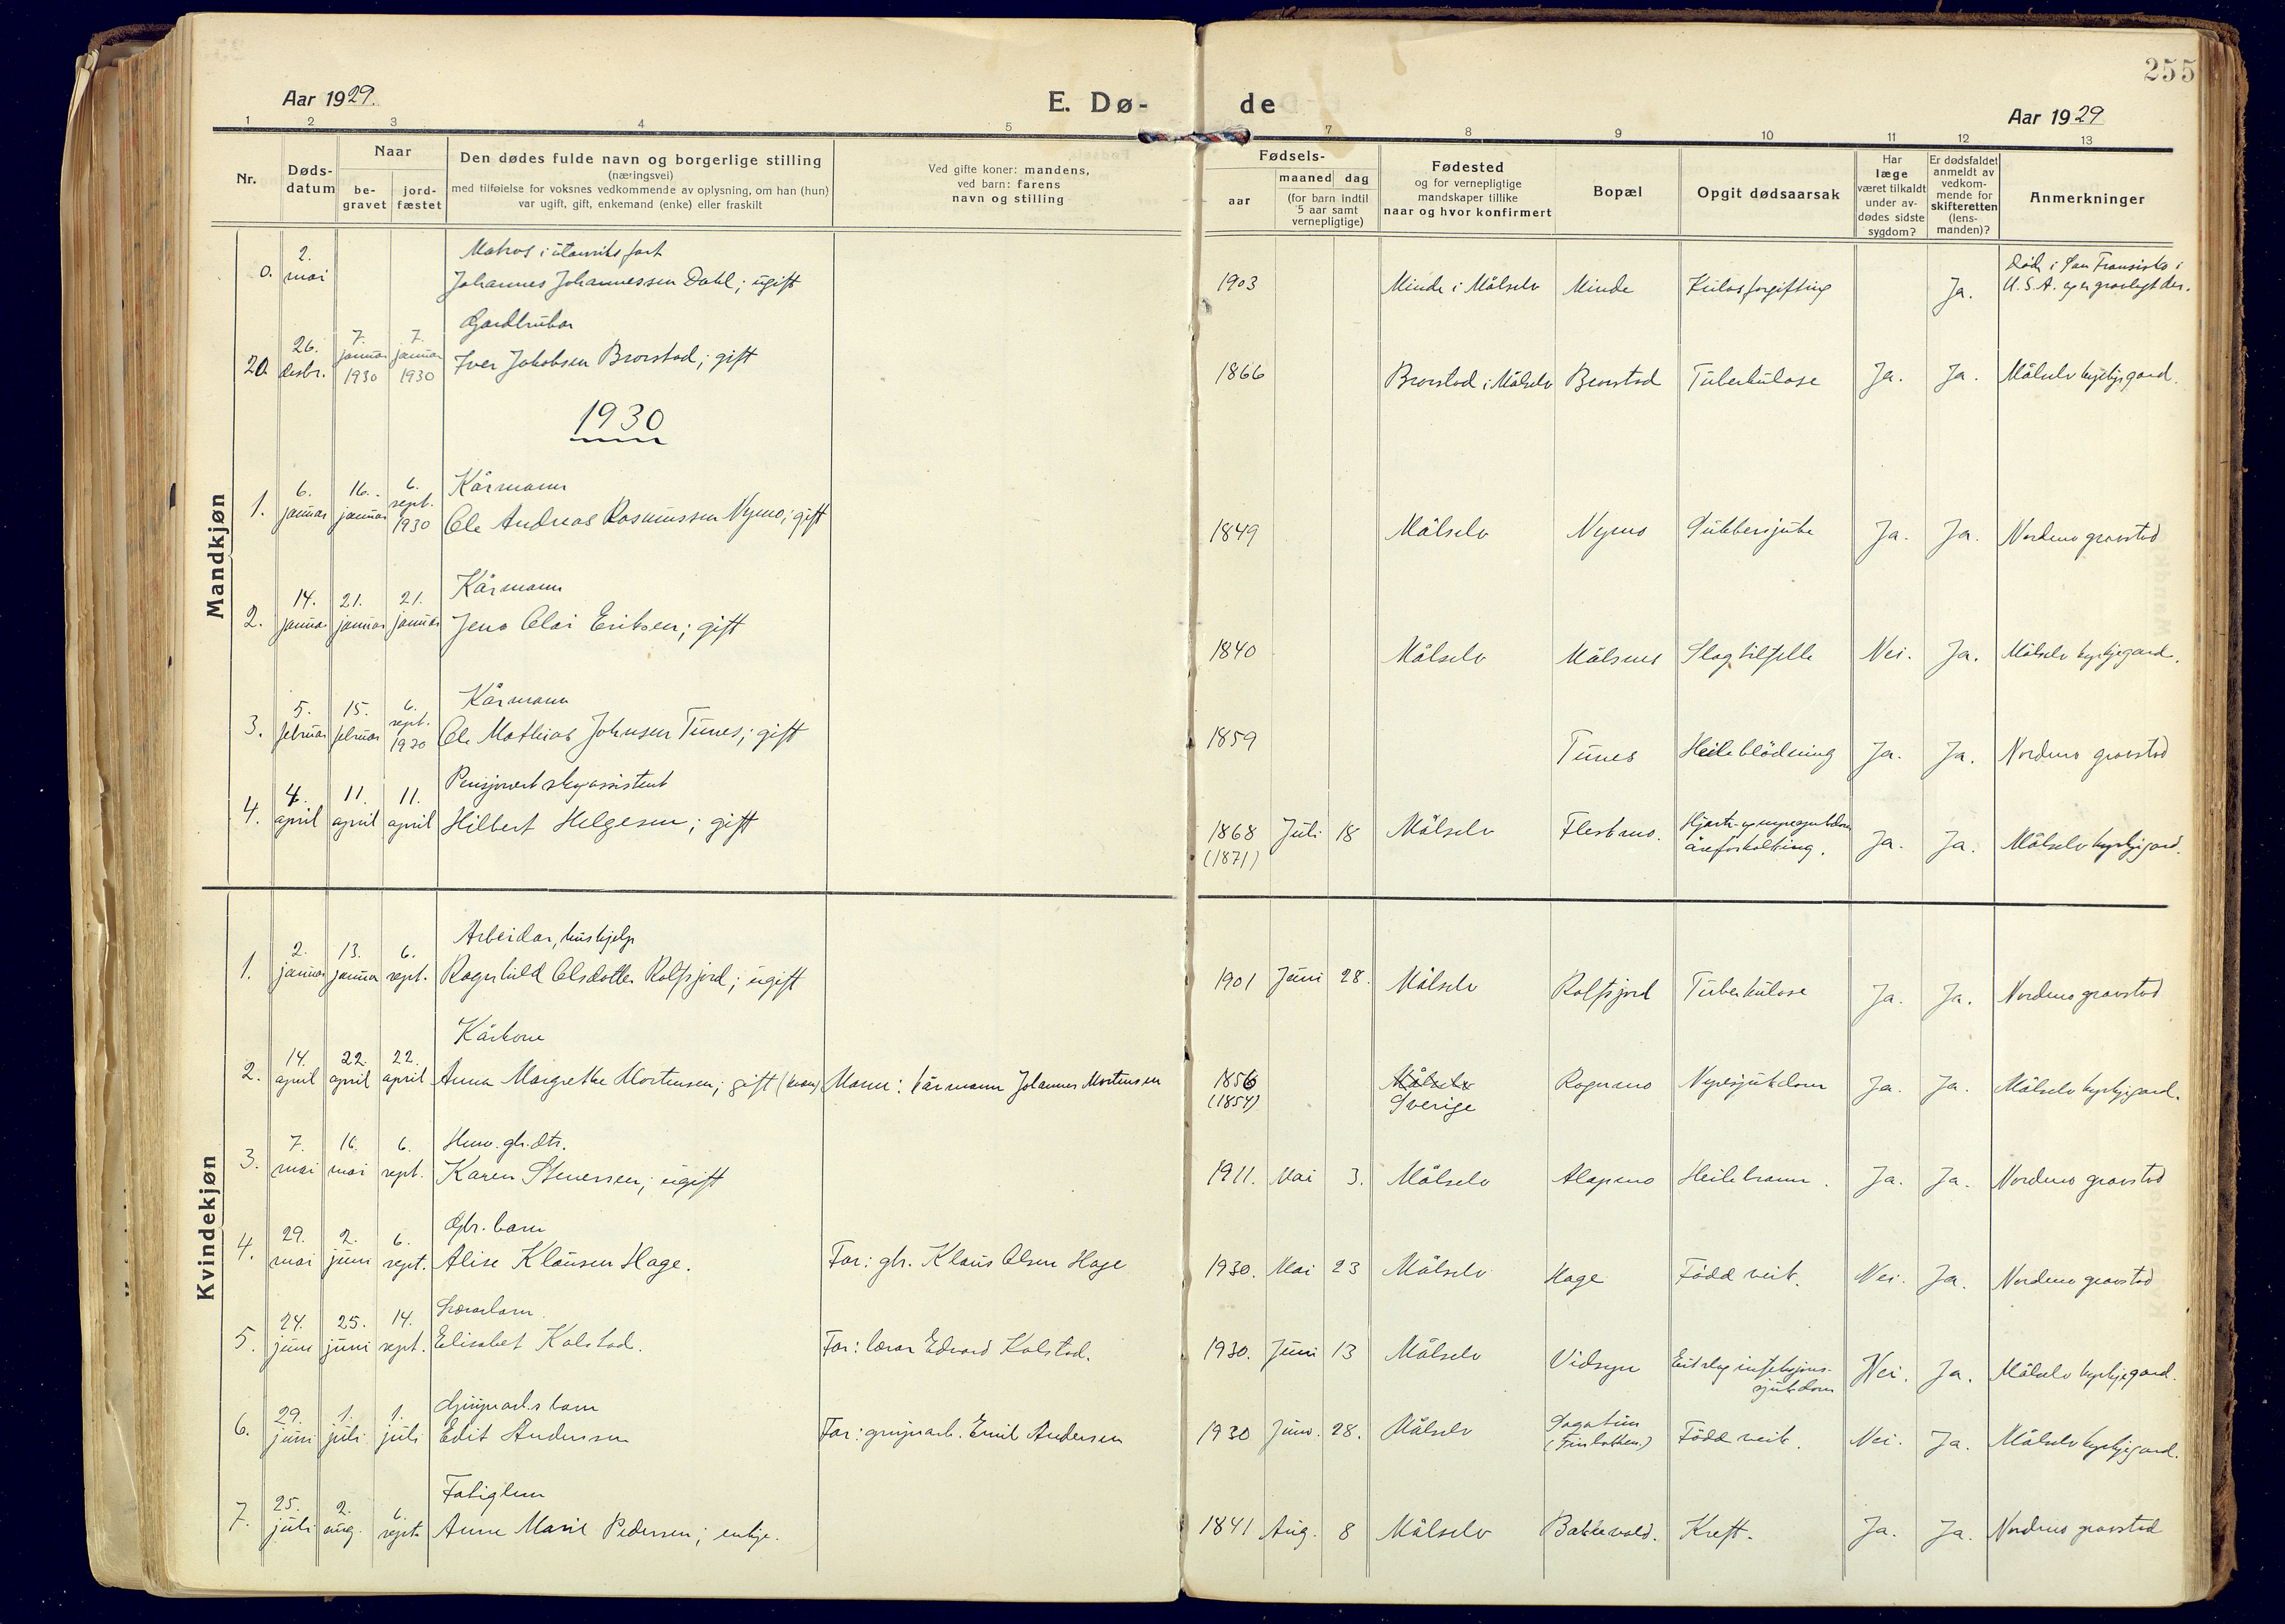 255
Aar 1929.
E. Dø-
de
Aar 1929
1 2 3 4 5 7 8 9 10 11 12 13
Nr.
Døds-
datum
Naar
be-
gravet
jord-
fæstet
Den dødes fulde navn og borgerlige stilling
(næringsvei)
med tilføielse for voksnes vedkommende av oplysning, om han (hun)
var ugift, gift, enkemand (enke) eller fraskilt
Ved gifte koner: mandens,
ved barn: farens
navn og stilling
Fødsels-
aar
maaned dag
(for barn indtil
5 aar samt
vernepligtige)
Fødested
og for vernepligtige
mandskaper tillike
naar og hvor konfirmert
Bopæl
Opgit dødsaarsak
Har
læge
været tilkaldt
under av-
dødes sidste
sygdom?
Er dødsfaldet
anmeldt av
vedkom-
mende for
skifteretten
(lens-
manden)?
Anmerkninger
Mandkjøn
0. 2. mai
Matros i utanriks fart
Johannes Johannessen Dahl; ugift
1903 Minde i Målselv Minde Kulosforgifting Ja.
Död i San Fransisko i
U.S.A. og er gravlagt der.
20. 26. desbr. 7. januar 1930 7. januar 1930
Gardbrukar
Iver Jakobsen Brorstad; gift
1866 Brorstad i Målselv Brorstad Tuberkulose Ja. Ja. Målselv kyrkjegard.
1930
1. 6. januar 16. januar 6. sept. 1930
Kårmann
Ole Andreas Rasmussen Nymo; gift
1849 Målselv Nymo Sukkersjuke Ja. Ja. Nordmo gravstad
2. 14. januar 21. januar 21. januar
Kårmann
Jens Olai Eriksen; gift
1840 Målselv Målsnes Slagtilfelle Nei. Ja. Målselv kyrkjegard.
3. 5. februar 15. februar 6. sept. 1930
Kårmann
Ole Mathias Johnsen Tunes; gift
1859 Tunes Heileblödning Ja. Ja. Nordmo gravstad
4. 4. april 11. april 11. april
Pensjonert skogassistent
Hilbert Helgesen; gift
1868 Juli 18 Målselv Flestmo. Hjarte- og nyresjukdom
(1871) åreforkalking. Ja. Ja. Målselv kyrkjegard.
Kvindekjøn
1. 2. januar 13. januar 6. sept.
Arbeidar, hushjelp
Ragnhild Olsdotter Rolfsjord; ugift
1901 Juni 28. Målselv Rolfsjord Tuberkulose Ja. Ja. Nordmo gravstad
2. 14. april 22. april 22. april
Kårkone
Anna Margrethe Mortensen; gift (kvæn) Mann: kårmann Johannes Mortensen
1856 (1854) Målselv Sverige Rognmo Nyresjukdom Ja. Ja. Målselv kyrkjegard.
3. 7. mai 16. mai 6. sept.
Hmv. gbr. dtr.
Karen Stenersen; ugift
1911. Mai 3. Målselv Alapmo Heilebrann. Ja. Ja. Nordmo gravstad
4. 29. mai 2. juni 6. sept.
Gbr. barn
Alise Klausen Hage. Far: gbr. Klaus Olsen Hage
1930. Mai 23 Målselv Hage Född veik. Nei. Ja. Nordmo gravstad
5. 24. juni 25. juni 14. sept.
Lærarbarn
Elisabet Kolstad. Far: lærar Edvard Kolstad.
1930. Juni 13 Målselv Vidsyn Eitslag infeksjons-
sjukdom Nei. Ja. Målselv kyrkjegard.
6. 29. juni 1. juli 1. juli
Gruvearb.s barn
Edit Andersen Far: gruvearb. Emil Andersen
1930 Juni. 28. Målselv Sagatun
(Finbakken.) Född veik. Nei. Ja. Målselv kyrkjegard.
7. 25. juli 2. aug. 6. sept.
Fatiglem
Anne Marie Pedersen; enkje.
1841 Aug. 8 Målselv Bakkevold. Kreft. Ja. Ja. Nordmo gravstad